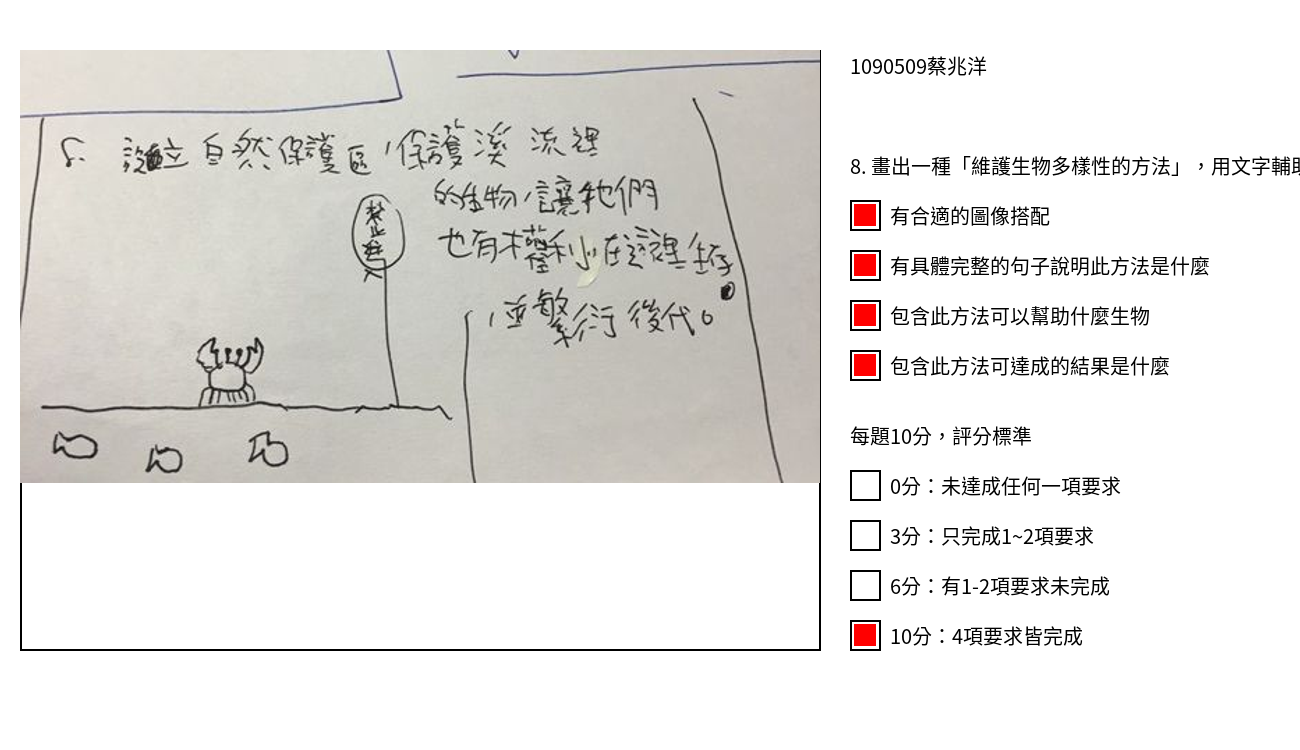 8. 設立自然保護區，保護溪流裡
的生物，讓牠們
也有權利在這裡生存
，並繁衍後代。
禁止進入
1090509蔡兆洋
8. 畫出一種「維護生物多樣性的方法」，用文字輔助
有合適的圖像搭配
有具體完整的句子說明此方法是什麼
包含此方法可以幫助什麼生物
包含此方法可達成的結果是什麼
每題10分，評分標準
0分：未達成任何一項要求
3分：只完成1~2項要求
6分：有1-2項要求未完成
10分：4項要求皆完成